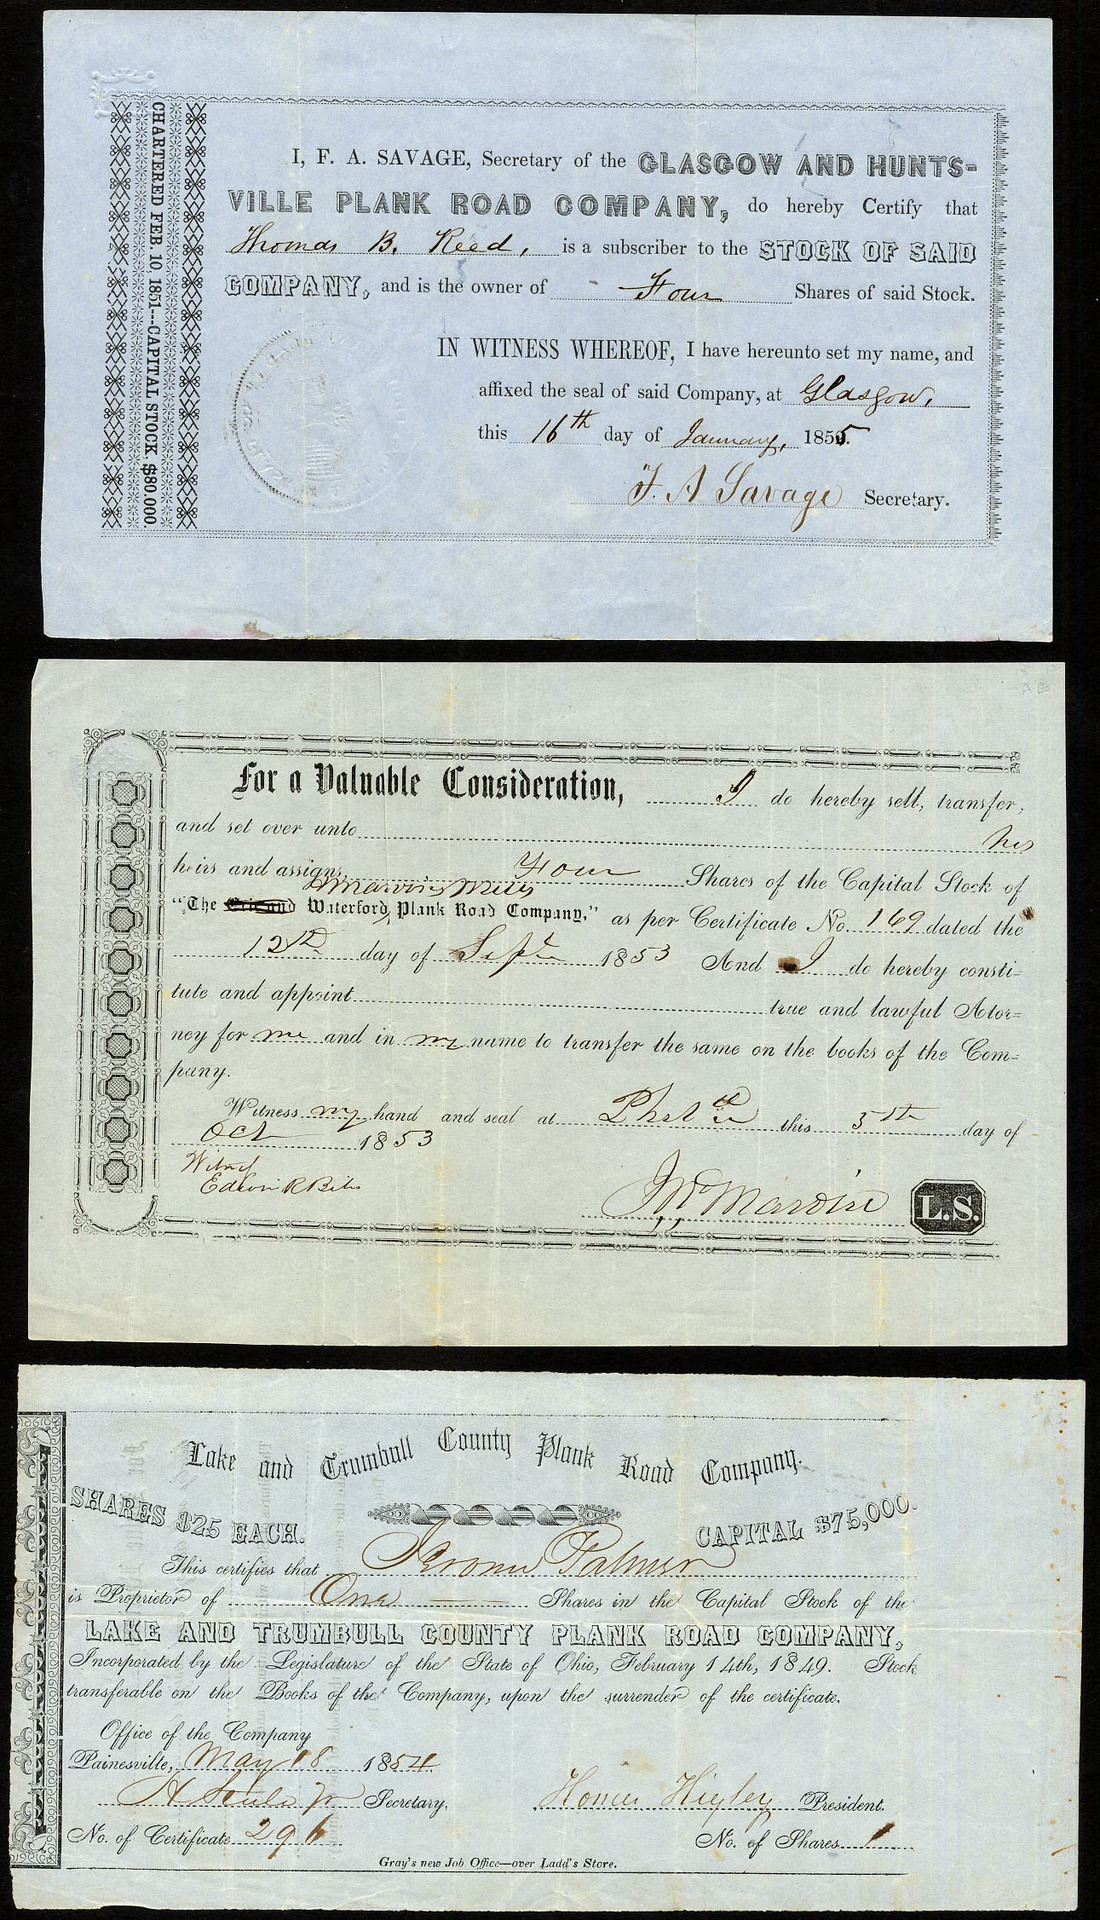 CHARTERED FEB. 10, 1851---CAPITAL STOCK $80.000.
I, F. A. SAVAGE, Secretary of the GLASGOW AND HUNTS-
VILLE PLANK ROAD COMPANY, do hereby Certify that
Thomas B. Reed, is a subscriber to the STOCK OF SAID
COMPANY, and is the owner of Four Shares of said Stock.
IN WITNESS WHEREOF, I have hereunto set my name, and
affixed the seal of said Company, at Glasgow,
this 16th day of January, 1855.
F. A Savage Secretary.
For a Valuable Consideration, I do hereby sell, transfer,
and set over unto his
heirs and assigns, Four Shares of the Capital Stock of
Marvin Mills
"The Erie and Waterford, Plank Road Company," as per Certificate No. 169 dated the
12th day of Sept 1853 And I do hereby consti-
tute and appoint true and lawful Ator=
ney for me and in my name to transfer the same on the books of the Com=
pany.
Witness my hand and seal at this 5th day of
Oct 1853
Edwin R
Marvin L.S.
Lake and Trumbull County Plank Road Company.
SHARES $25 EACH. CAPITAL $75,000.
This certifies that Jerome Palmer
is Proprietor of One Shares in the Capital Stock of the
LAKE AND TRUMBULL COUNTY PLANK ROAD COMPANY,
Incorporated by the Legislature of the State of Ohio, February 14th, 1849. Stock
transferable on the Books of the Company, upon the surrender of the certificate.
Office of the Company
Painesville, May 18 1854
H Jr Secretary. Homer Higley President.
No. of Certificate 296 No. of Shares 1
Gray's new Job Office—over Ladd's Store.